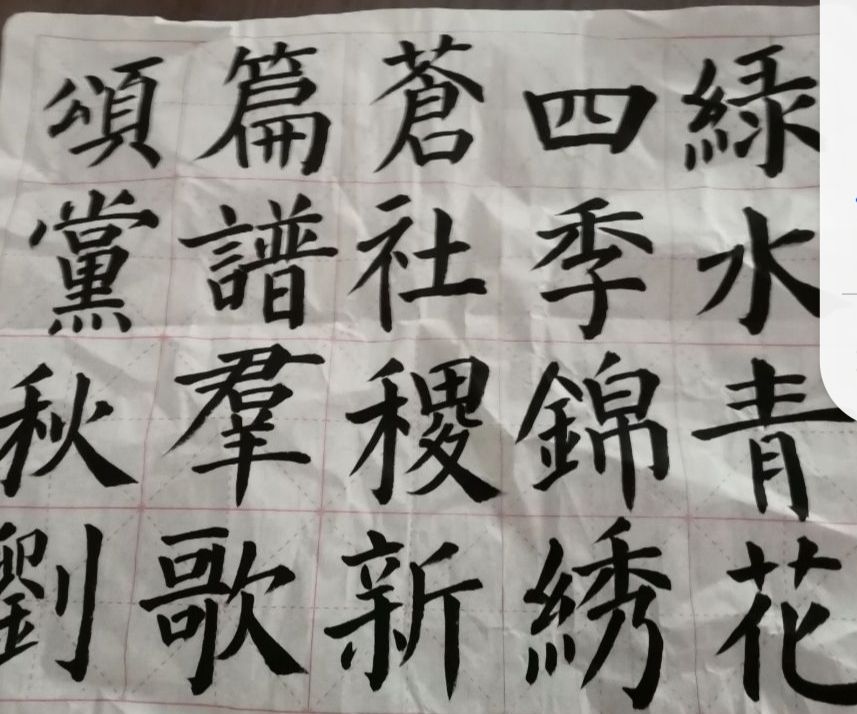 綠水青花
四季錦綉
蒼社稷新
篇譜羣歌
頌黨秋劉